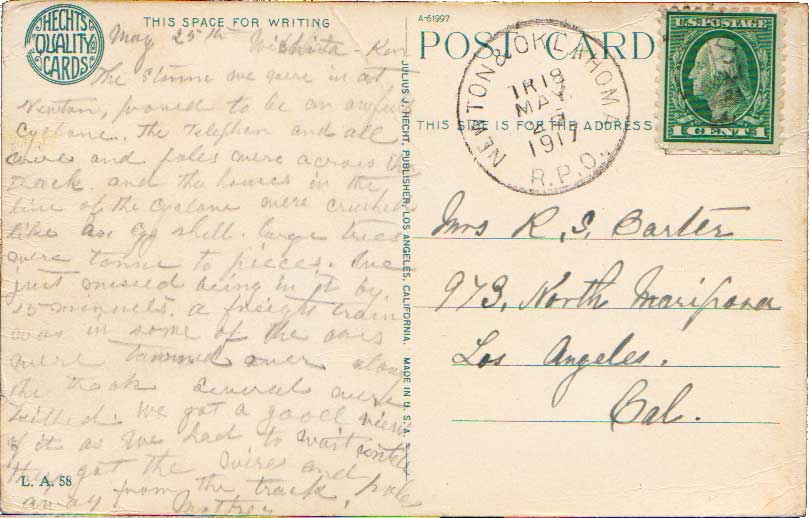 HECHTS QUALITY CARDS
THIS SPACE FOR WRITING
May 25th Wichita - Kan
The Storme we were in at
Newton, proved to be an awful
Cyclone. The Telephon and all
wires and poles were across the
track. and the houses in the
line of the Cyclone were crushed
like an egg shell. large trees
were torne to pieces. We
just missed being in it by
15 minuets. a freight train
was in some of the cars
were turned over along
the track several were
killed. We got a good view
of it as we had to wait untill
they got the wires and poles
away from the track.
Mother
L. A. 58
JULIUS J. HECHT, PUBLISHER, LOS ANGELES, CALIFORNIA. MADE IN U.S.A.
A-61997
POST CARD
THIS SIDE IS FOR THE ADDRESS
NEWTON & OKLAHOMA
TR 19
MAY
1917
R.P.O.
U.S. POSTAGE
1 CENT 1
Mrs R. S. Carter
973, North Mariposa
Los Angeles.
Cal.